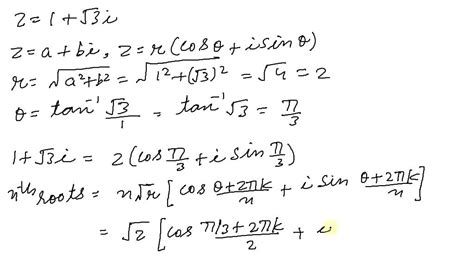 z = 1 + √3i
z = a + bi, z = r (cos θ + i sin θ)
r = √a²+b² = √1²+(√3)² = √4 = 2
θ = tan⁻¹ √3/1 = tan⁻¹ √3 = π/3
1 + √3i = 2 (cos π/3 + i sin π/3)
nth roots = n√r [cos θ+2πk/n + i sin θ+2πk/n]
= √2 [cos π/3+2πk/2 + i